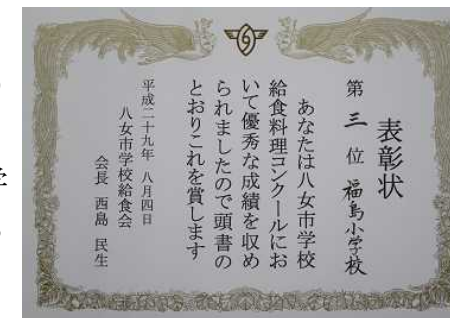 表彰状
第三位 福島小学校
あなたは八女市学校
給食料理コンクールにお
いて優秀な成績を収め
られましたので頭書の
とおりこれを賞します
平成二十九年 八月四日
八女市学校給食会
会長 西島 民生